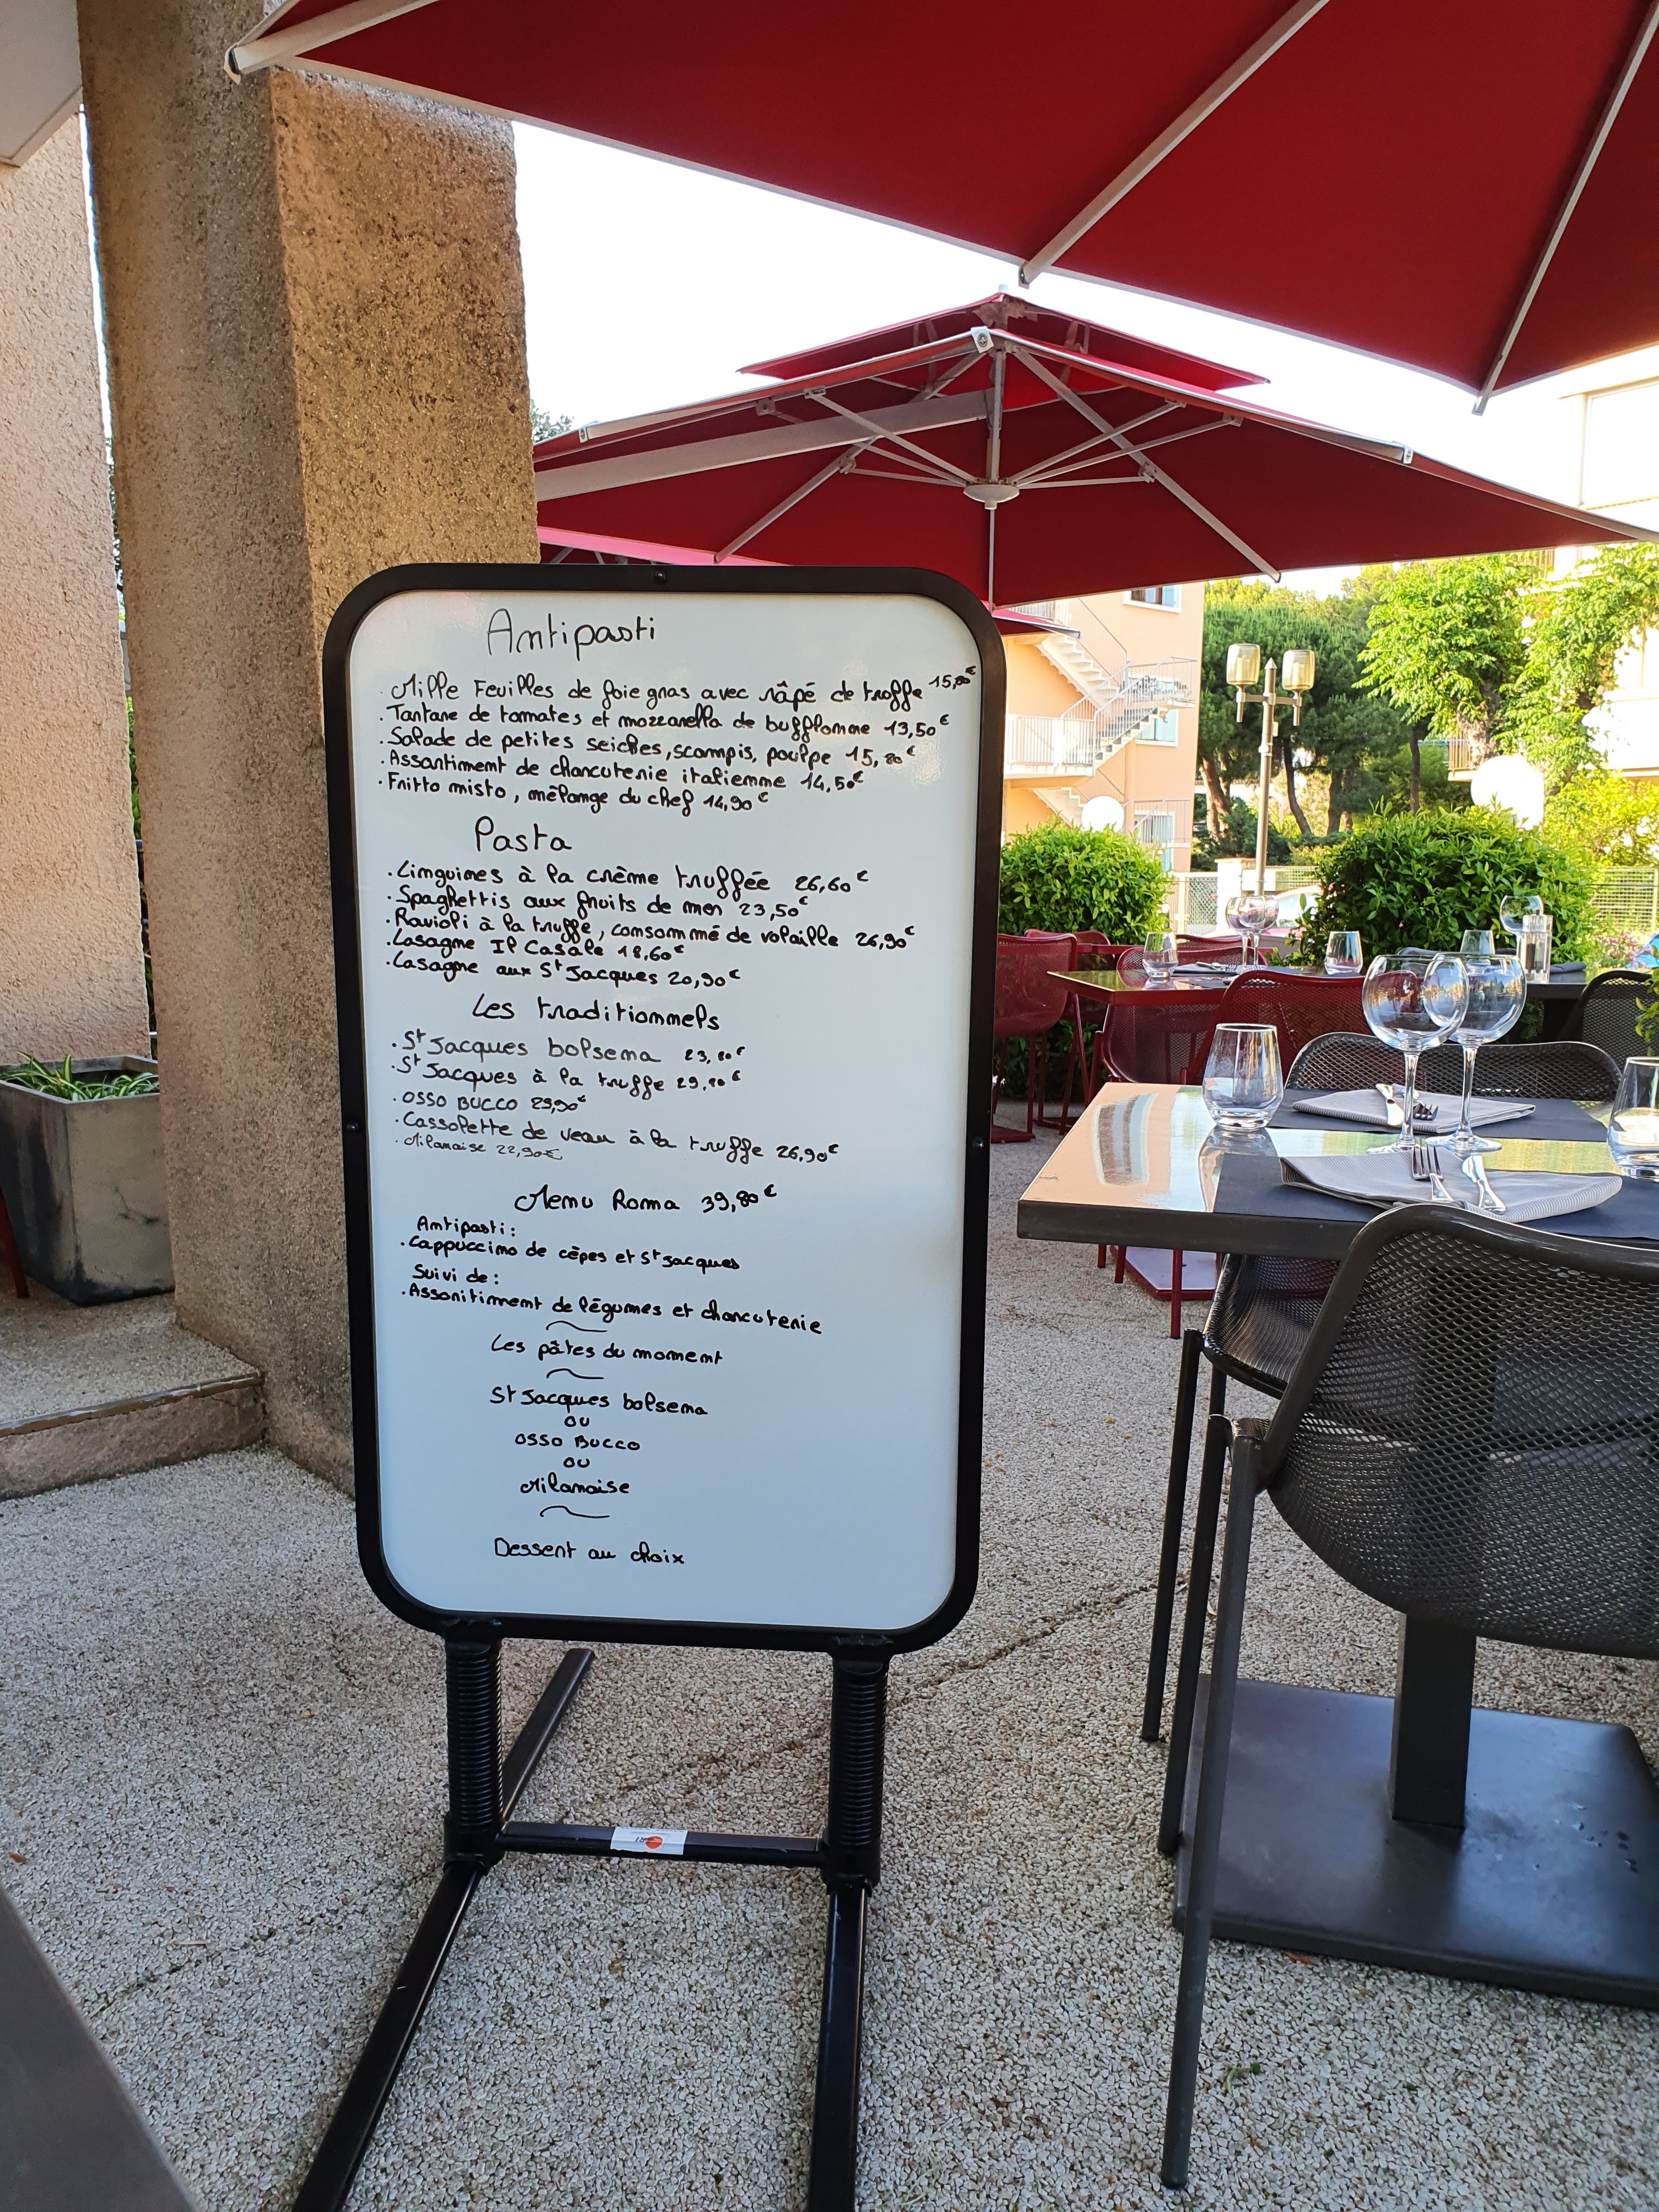 Antipasti
. Mille Feuilles de foie gras avec râpé de truffe 15,80€
. Tartare de tomates et mozzarella de bufflonne 13,50€
. Salade de petites seiches, scampis, poulpe 15,80€
. Assortiment de charcuterie italienne 14,50€
. Fritto misto, mélange du chef 14,90€
Pasta
. Linguines à la crème truffée 26,60€
. Spaghettis aux fruits de mer 23,50€
. Ravioli à la truffe, consommé de volaille 26,90€
. Lasagne Il Casale 18,60€
. Lasagne aux St Jacques 20,90€
Les traditionnels
. St Jacques bolsena
. St Jacques à la truffe
. OSSO BUCCO 23,90€
. Cassolette de veau à la truffe 26,90€
. Milanaise 22,90€
Menu Roma 39,80€
Antipasti :
. Cappuccino de cèpes et St Jacques
Suivi de :
. Assoritinment de légumes et charcuterie
Les pâtes du moment
St Jacques bolsena
ou
OSSO BUCCO
ou
Milanaise
Dessert au choix